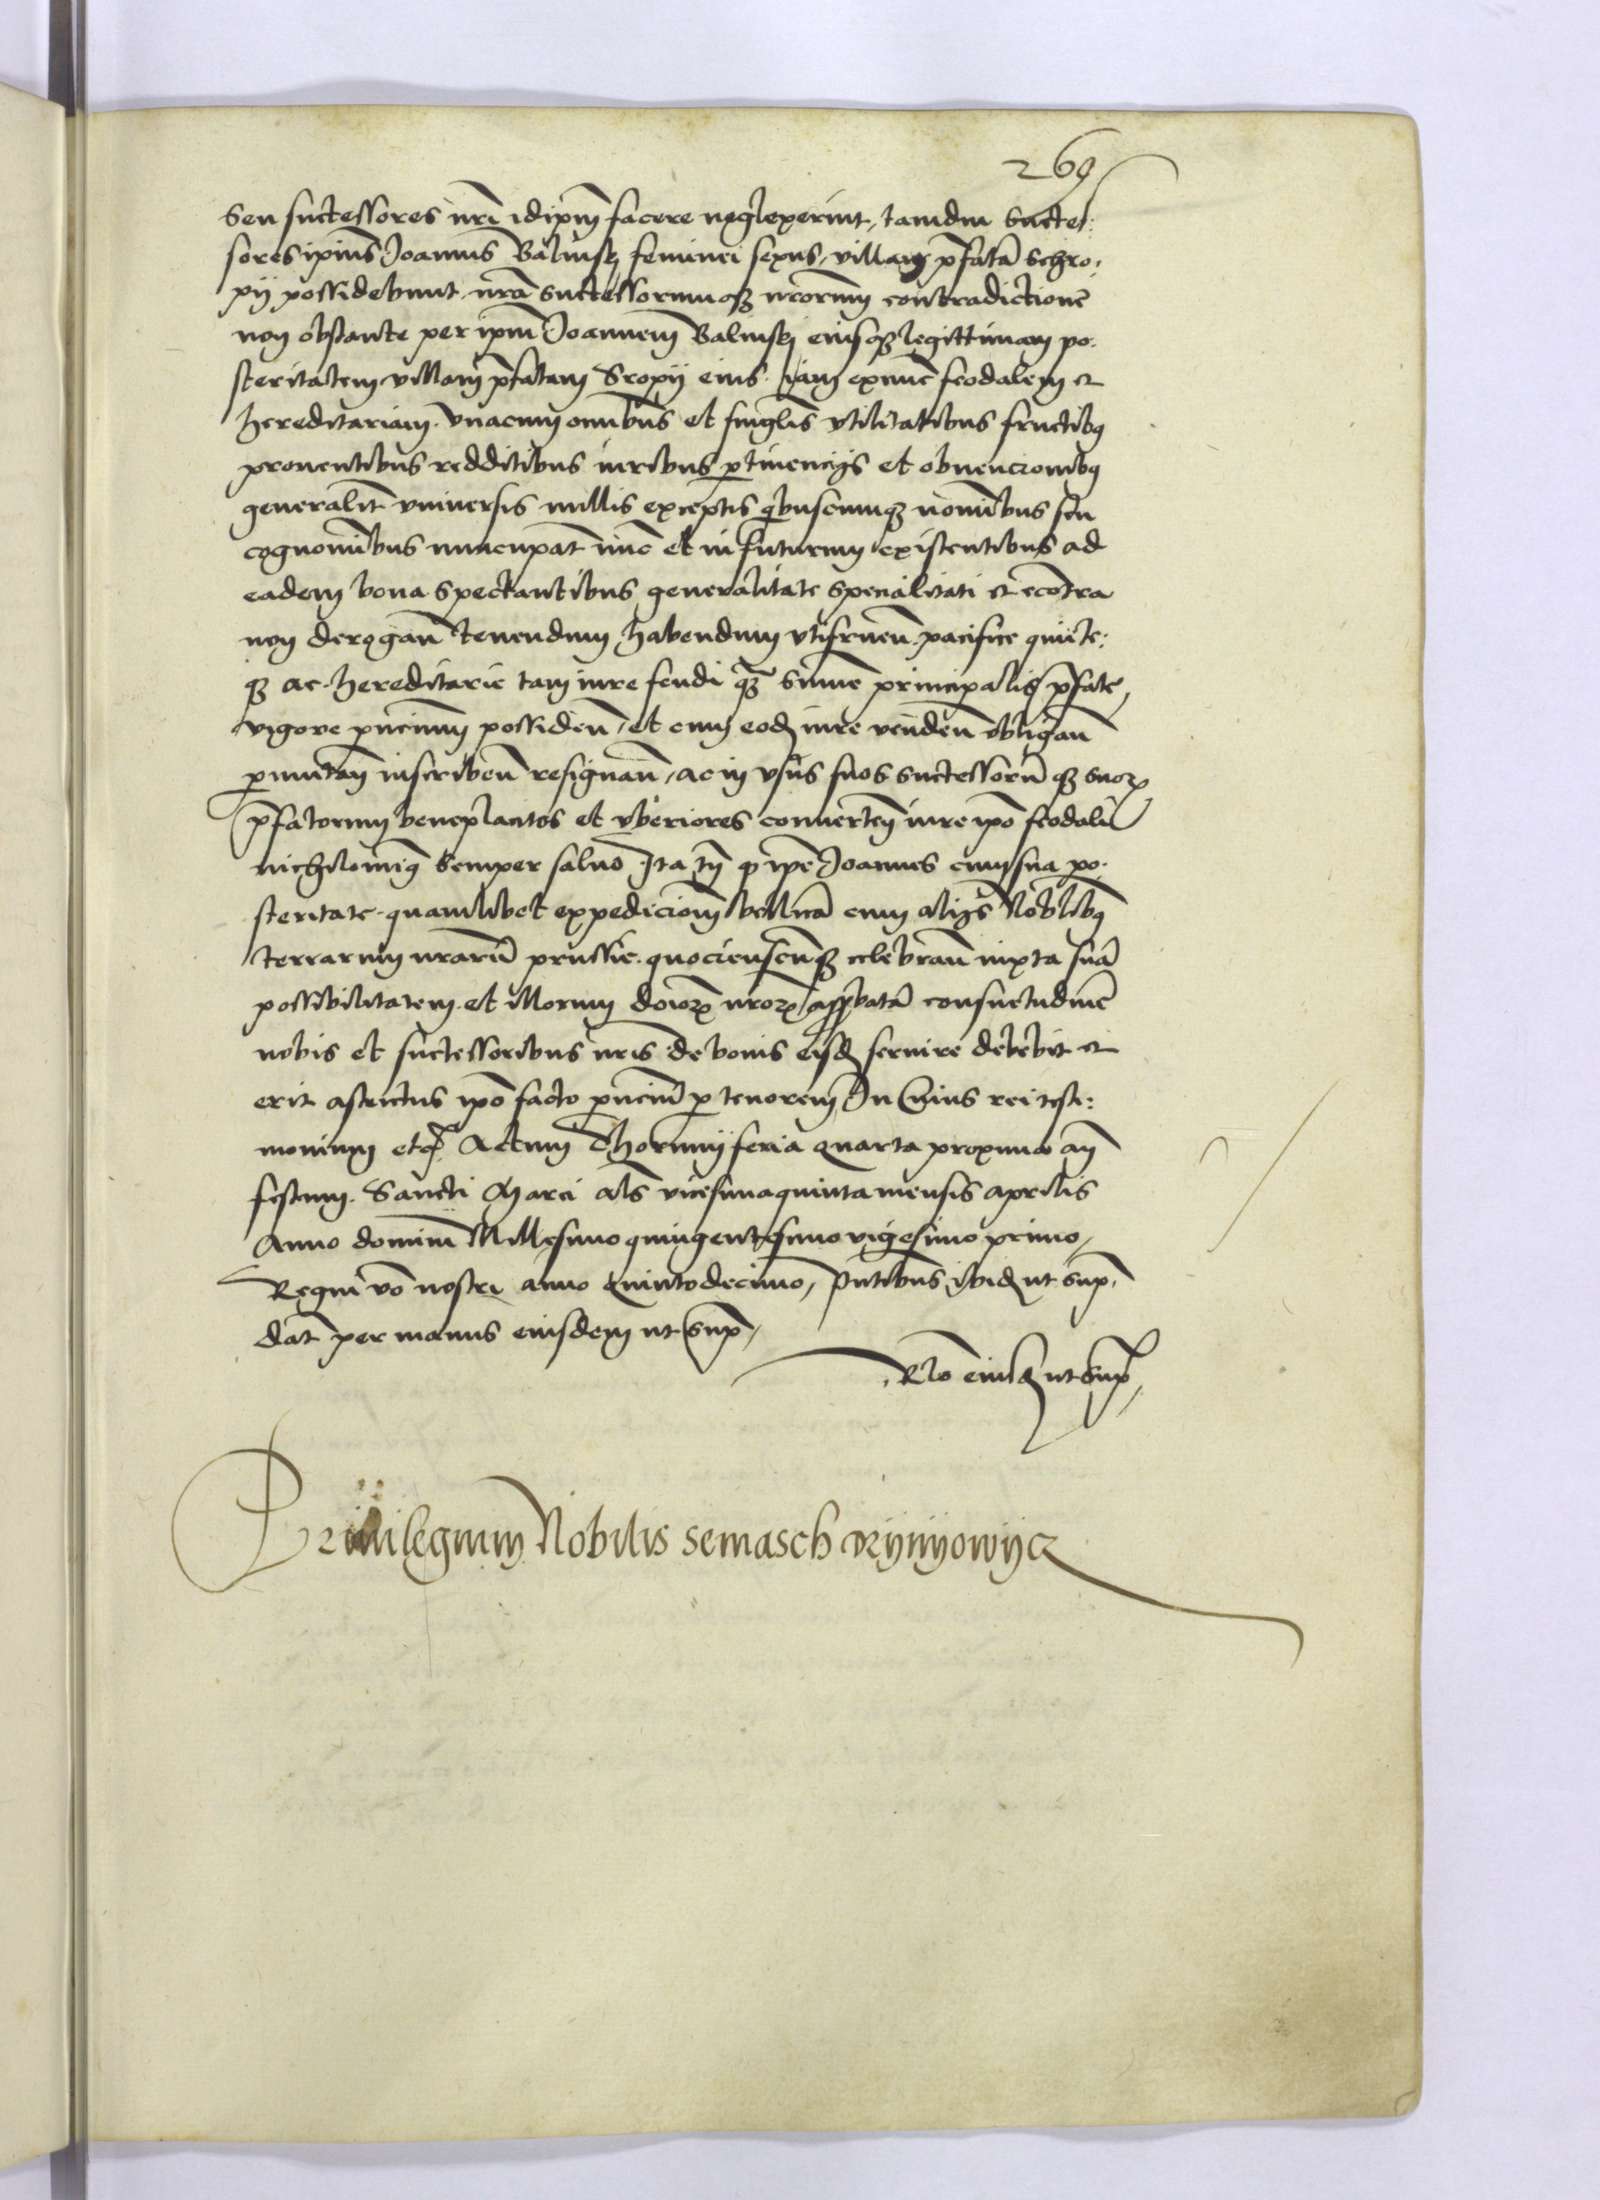 269
Seu successores nri idipm facere neglexerint, tamdiu succes:
sores ipius Joannis Balinskj feminei sexus, villam pfatã Schro:
pij possidebunt nrã successorumqȝ nrorum contradictione
non obstante per ipm Joannem Balinskj eiusqȝ legittimam po:
steritatem villam pfatam Sropij eius iam exnunc feodalem et
hereditariam. vnacum omibus et singlis vtilitatibus fructibq
prouentibus redditibus iuribus ptinencijs et obuencionibq
generalit vniuersis nullis exceptis qbuscumqȝ nominibus seu
cognomibus nuncupat nnc et in futurum existentibus ad
eadem bona spectantibus generalitate specialitati et econtra
non derogan tenendum habendum vtifruen. pacifice quiete:
qȝ ac hereditarie tam iure feudi qȝ summe principalis pfate,
vigore pncium possiden, et cum eodȝ iure venden obligan
pmutan inscriben resignan, ac in vsus suos successorũ qȝ suoꝝ
pfatorum beneplacitos et vberiores conuerten iure ipo feodali
nichilominq semper saluo Ita tn q ipe Joannes cum sua po:
steritate quamlibet expedicionem bellicã cum alijs Nobilibq
terrarum nrarũ prussie quociescunqȝ celebran iuxta suã
possibilitatem et illorum doioꝝ nroꝝ appbatã consuetudinẽ
nobis et successoribus nris de bonis eisdȝ seruire debebit et
erit astrictus ipo facto pncium p tenorem In cuius rei testi:
monium etc Actum Thorunij feria quarta proxima an
festum Sancti Marci als vicesimaquinta mensis aprilis
Anno domini Millesimo quingentesimo vigesimo primo,
Regni vo nostri anno quintodecimo, Pntibus ibidȝ ut sup,
dat per manus eiusdem ut sup,
Rlo eiusdȝ ut sup,
Priuilegium Nobilis semasch